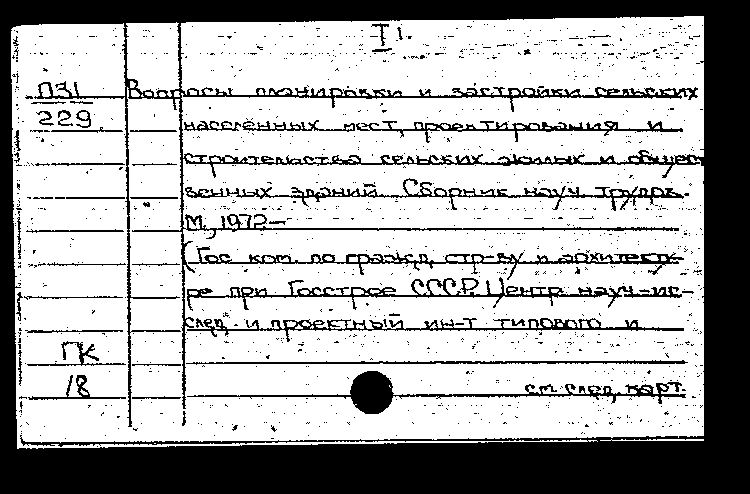 I 1.
П31 Вопросы планировки и застройки сельских
229 населенных мест, проектирования и
строительства сельских жилых и общест
венных зданий. Сборник науч. трудов.
М., 1972—
(Гос. ком. по гражд. стр-ву и архитекту-
ре при Госстрое СССР. Центр. науч-ис-
след. и проектный ин-т типового и
ГК
18 см. след. карт.